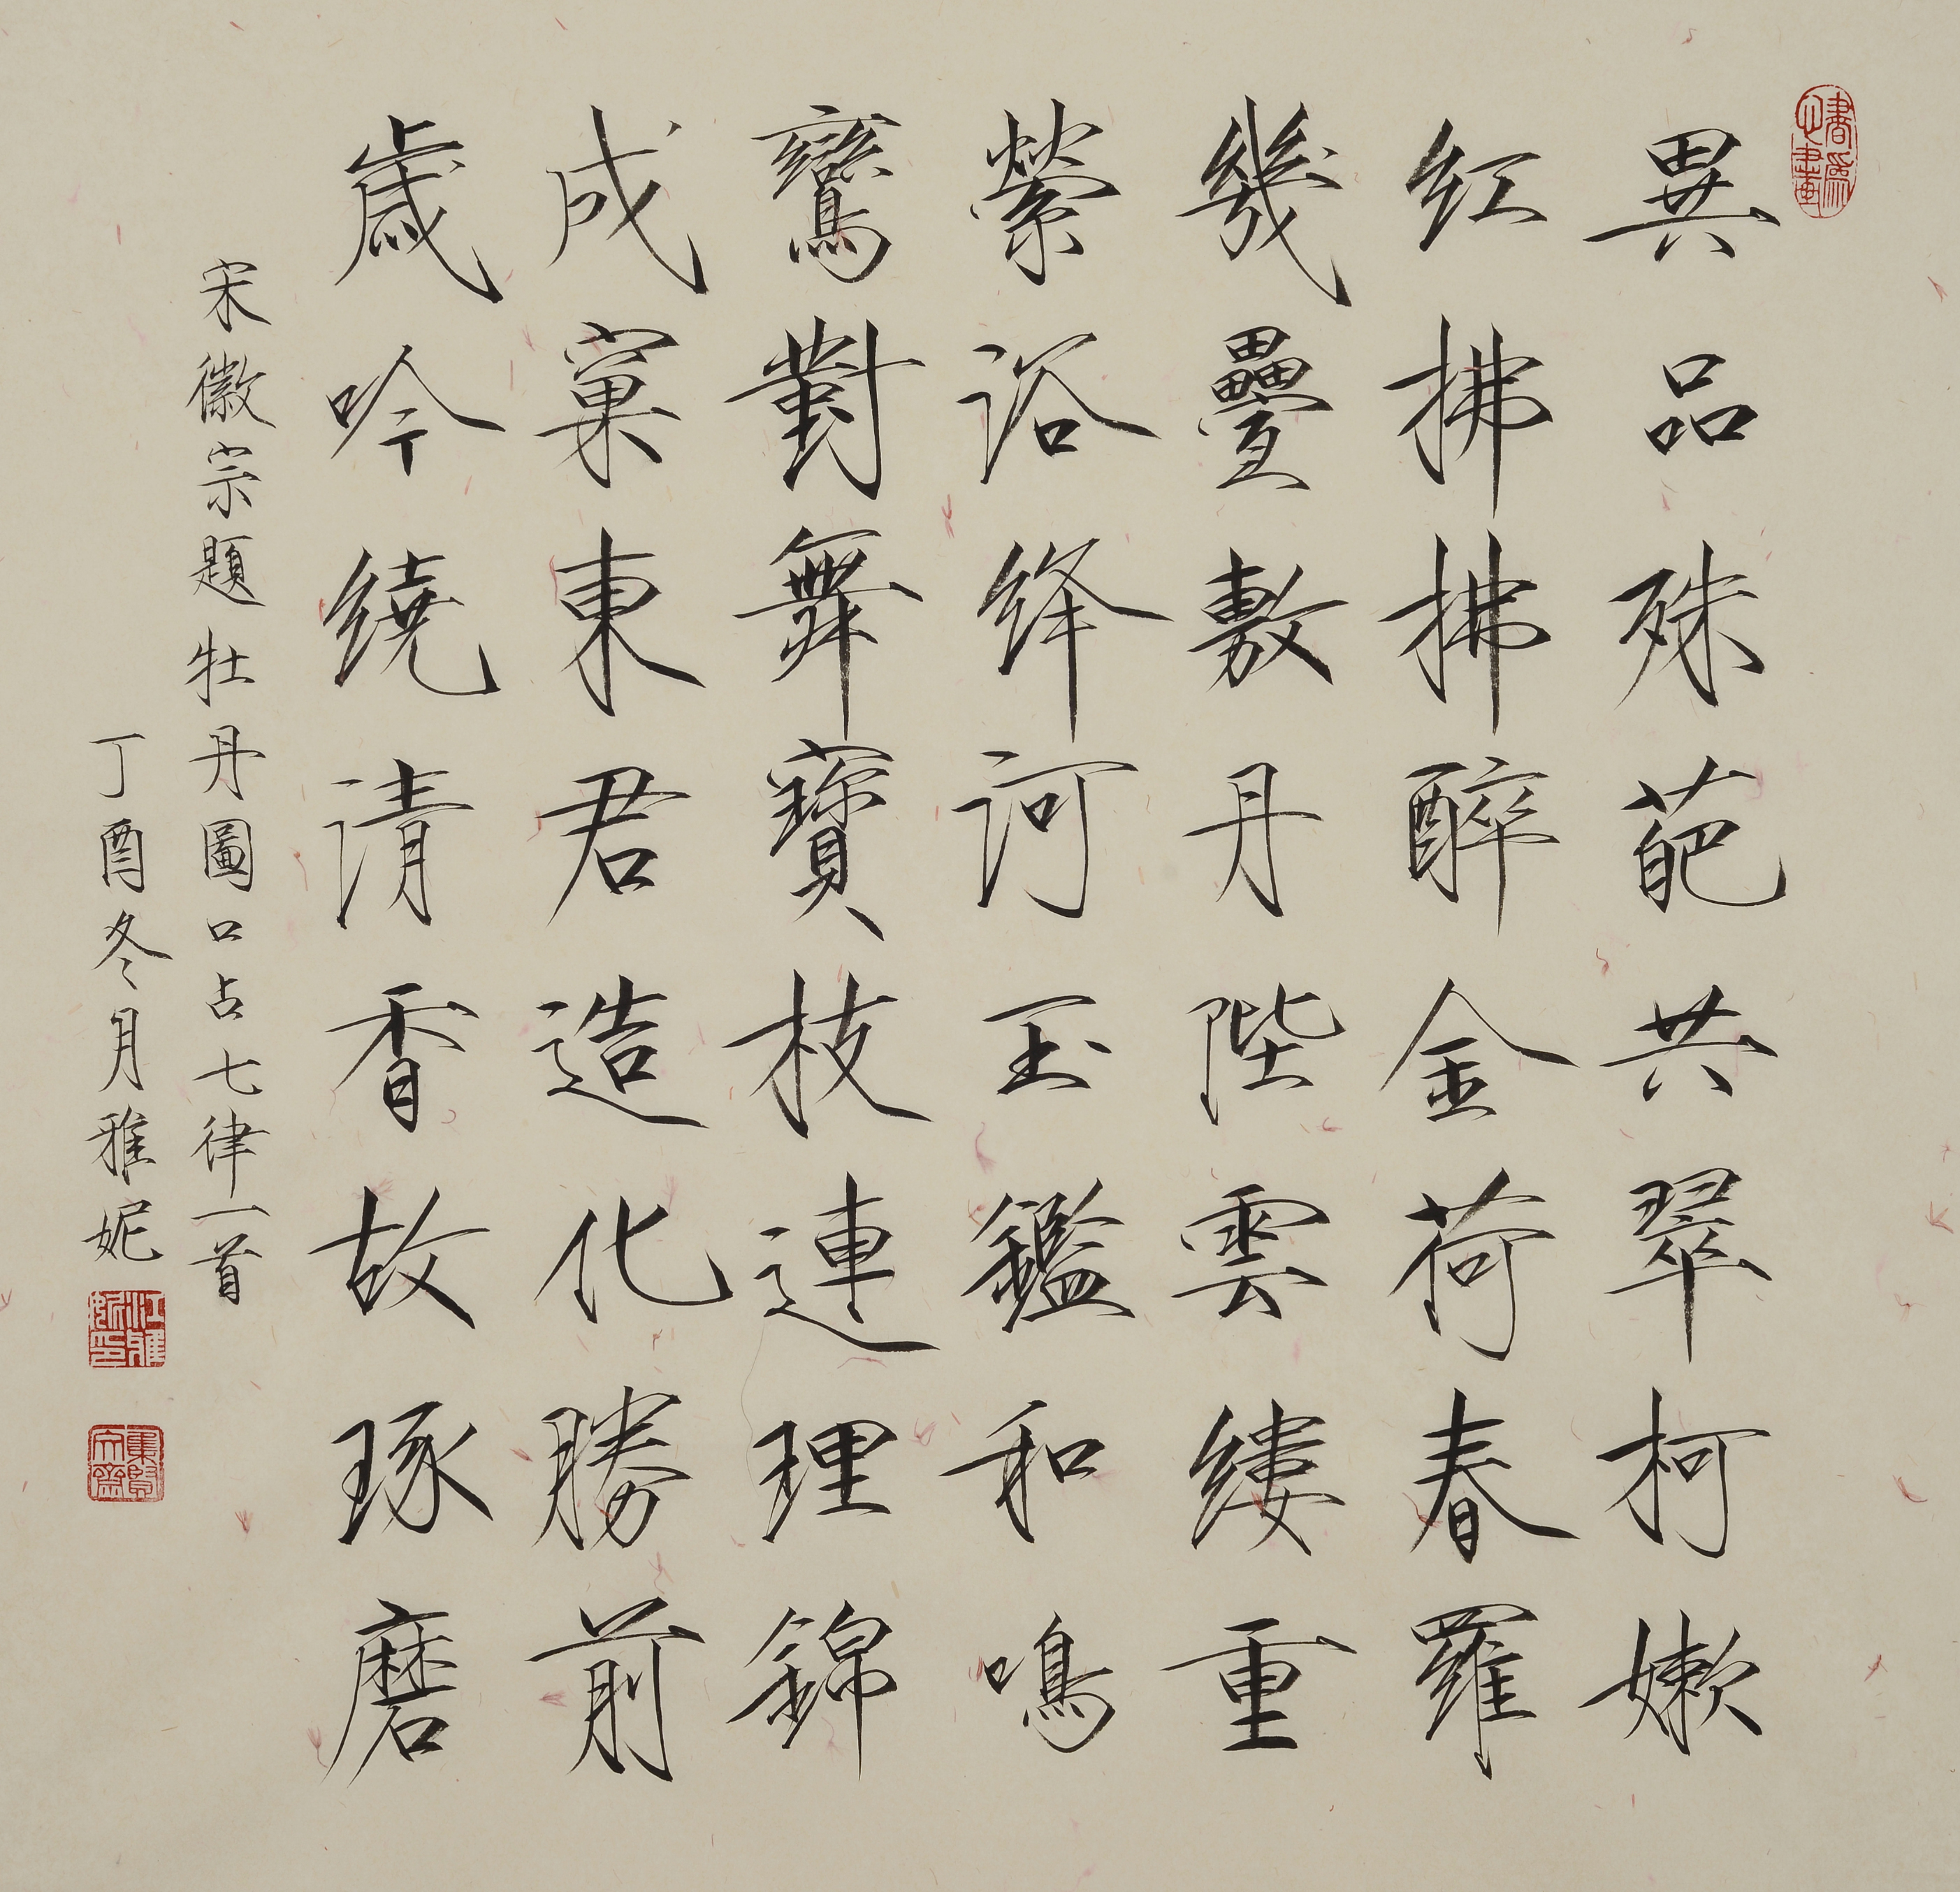 書為心畫
異品殊葩共翠柯嫩
红拂拂醉金荷春羅
幾疊敷丹陛雲縷重
縈浴绛河玉鑑和鳴
鸞對舞寶枝連理錦
成窠東君造化勝前
歲吟繞清香故琢磨
宋徽宗題牡丹圖口占七律一首
丁酉冬月雅妮
江雅妮印